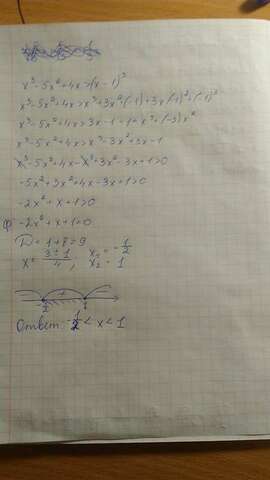 x³ - 5x² + 4x > (x - 1)³
x³ - 5x² + 4x > x³ + 3x²(-1) + 3x(-1)² + (-1)³
x³ - 5x² + 4x > 3x - 1 + x³ + (-3)x²
x³ - 5x² + 4x > x³ - 3x² + 3x - 1
x³ - 5x² + 4x - x³ + 3x² - 3x + 1 > 0
-5x² + 3x² + 4x - 3x + 1 > 0
-2x² + x + 1 > 0
-2x² + x + 1 = 0
D = 1 + 8 = 9
x = 3 ± 1 / 4, x₁ = -1/2
x₂ = 1
- + -
-1/2 1
Ответ: -1/2 < x < 1